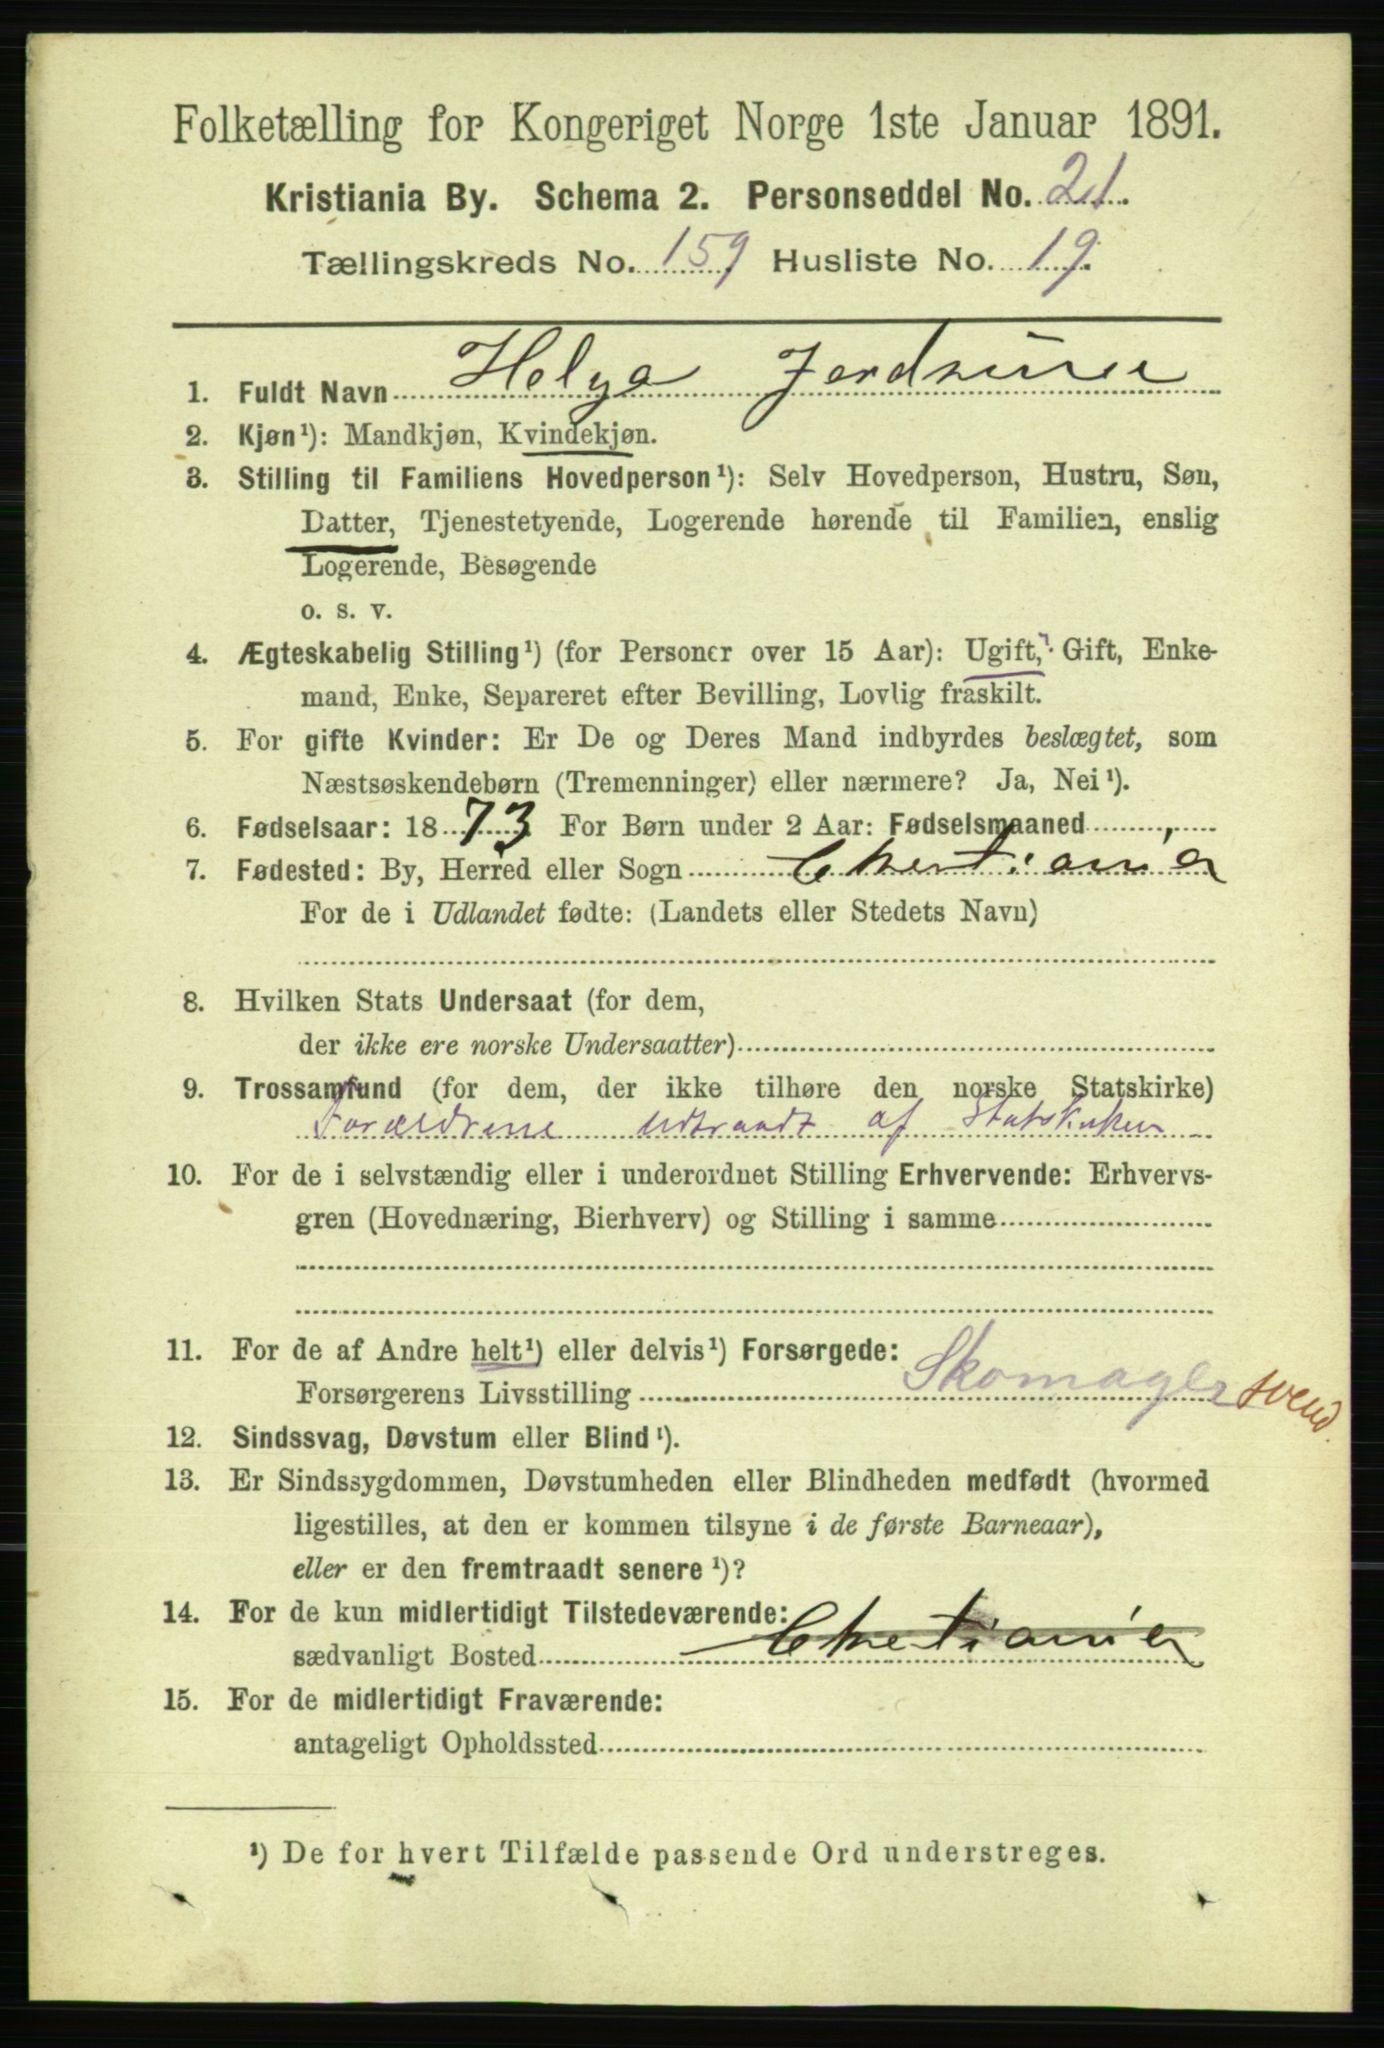 Folketælling for Kongeriget Norge 1ste Januar 1891.
Kristiania By. Schema 2. Personseddel No. 21.
Tællingskreds No. 159 Husliste No. 19.
1. Fuldt Navn Helga
2. Kjøn¹): Mandkjøn, Kvindekjøn.
3. Stilling til Familiens Hovedperson¹): Selv Hovedperson, Hustru, Søn,
Datter, Tjenestetyende, Logerende hørende til Familien, enslig
Logerende, Besøgende
o. s. v.
4. Ægteskabelig Stilling¹) (for Personer over 15 Aar): Ugift, Gift, Enke-
mand, Enke, Separeret efter Bevilling, Lovlig fraskilt.
5. For gifte Kvinder: Er De og Deres Mand indbyrdes beslægtet, som
Næstsøskendebørn (Tremenninger) eller nærmere? Ja, Nei¹).
6. Fødselsaar: 1873 For Børn under 2 Aar: Fødselsmaaned
7. Fødested: By, Herred eller Sogn Christiania
For de i Udlandet fødte: (Landets eller Stedets Navn)
8. Hvilken Stats Undersaat (for dem,
der ikke ere norske Undersaatter)
9. Trossamfund (for dem, der ikke tilhøre den norske Statskirke)
Forældrene udtraadt af Statskirken
10. For de i selvstændig eller i underordnet Stilling Erhvervende: Erhvervs-
gren (Hovednæring, Bierhverv) og Stilling i samme
11. For de af Andre helt¹) eller delvis¹) Forsørgede:
Forsørgerens Livsstilling Skomagersvend.
12. Sindssvag, Døvstum eller Blind¹).
13. Er Sindssygdommen, Døvstumheden eller Blindheden medfødt (hvormed
ligestilles, at den er kommen tilsyne i de første Barneaar),
eller er den fremtraadt senere¹)?
14. For de kun midlertidigt Tilstedeværende:
sædvanligt Bosted Christiania
15. For de midlertidigt Fraværende:
antageligt Opholdssted
¹) De for hvert Tilfælde passende Ord understreges.